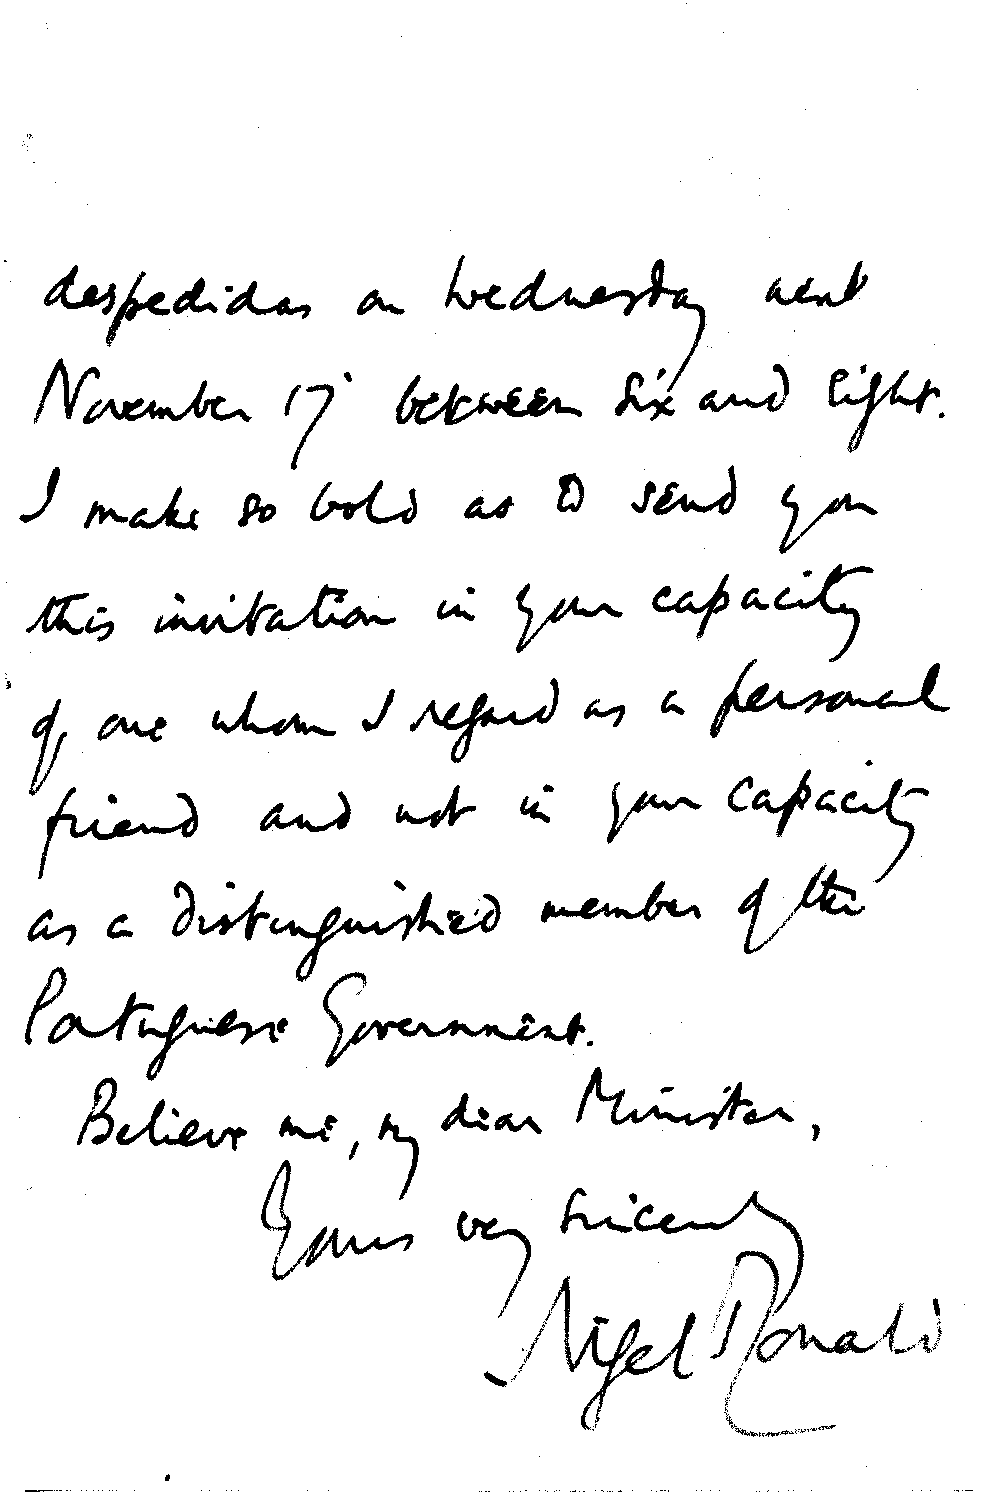 despedidas on Wednesday next
November 17 between six and eight.
I make so bold as to send you
this invitation in your capacity
of one whom I regard as a personal
friend and not in your capacity
as a distinguished member of the
Portuguese Government.
Believe me, my dear Minister,
Yours very sincerely
Nigel Ronald